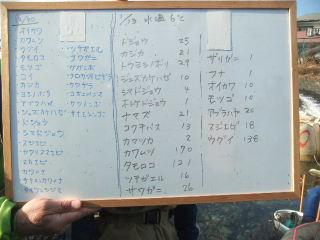 オイカワ
カワムツ
ウグイ
タモロコ
モツゴ
コイ
カマツカ
ヨシノボリ
アブラハヤ
ジュズカケハゼ
ドジョウ
シマドジョウ
スジエビ
ヌカエビ
カワニナ
ツチガエル
サワガニ
水温 6℃
ドジョウ 25
カジカ 21
トウヨシノボリ 29
ジュズカケハゼ 10
シマドジョウ 4
ホトケドジョウ 1
ナマズ 21
コクチバス 13
カマツカ 2
カワムツ 170
タモロコ 121
ツチガエル 16
サワガニ 26
ザリガニ 1
フナ 1
オイカワ 10
モツゴ 10
アブラハヤ 20
スジエビ 18
ウグイ 138